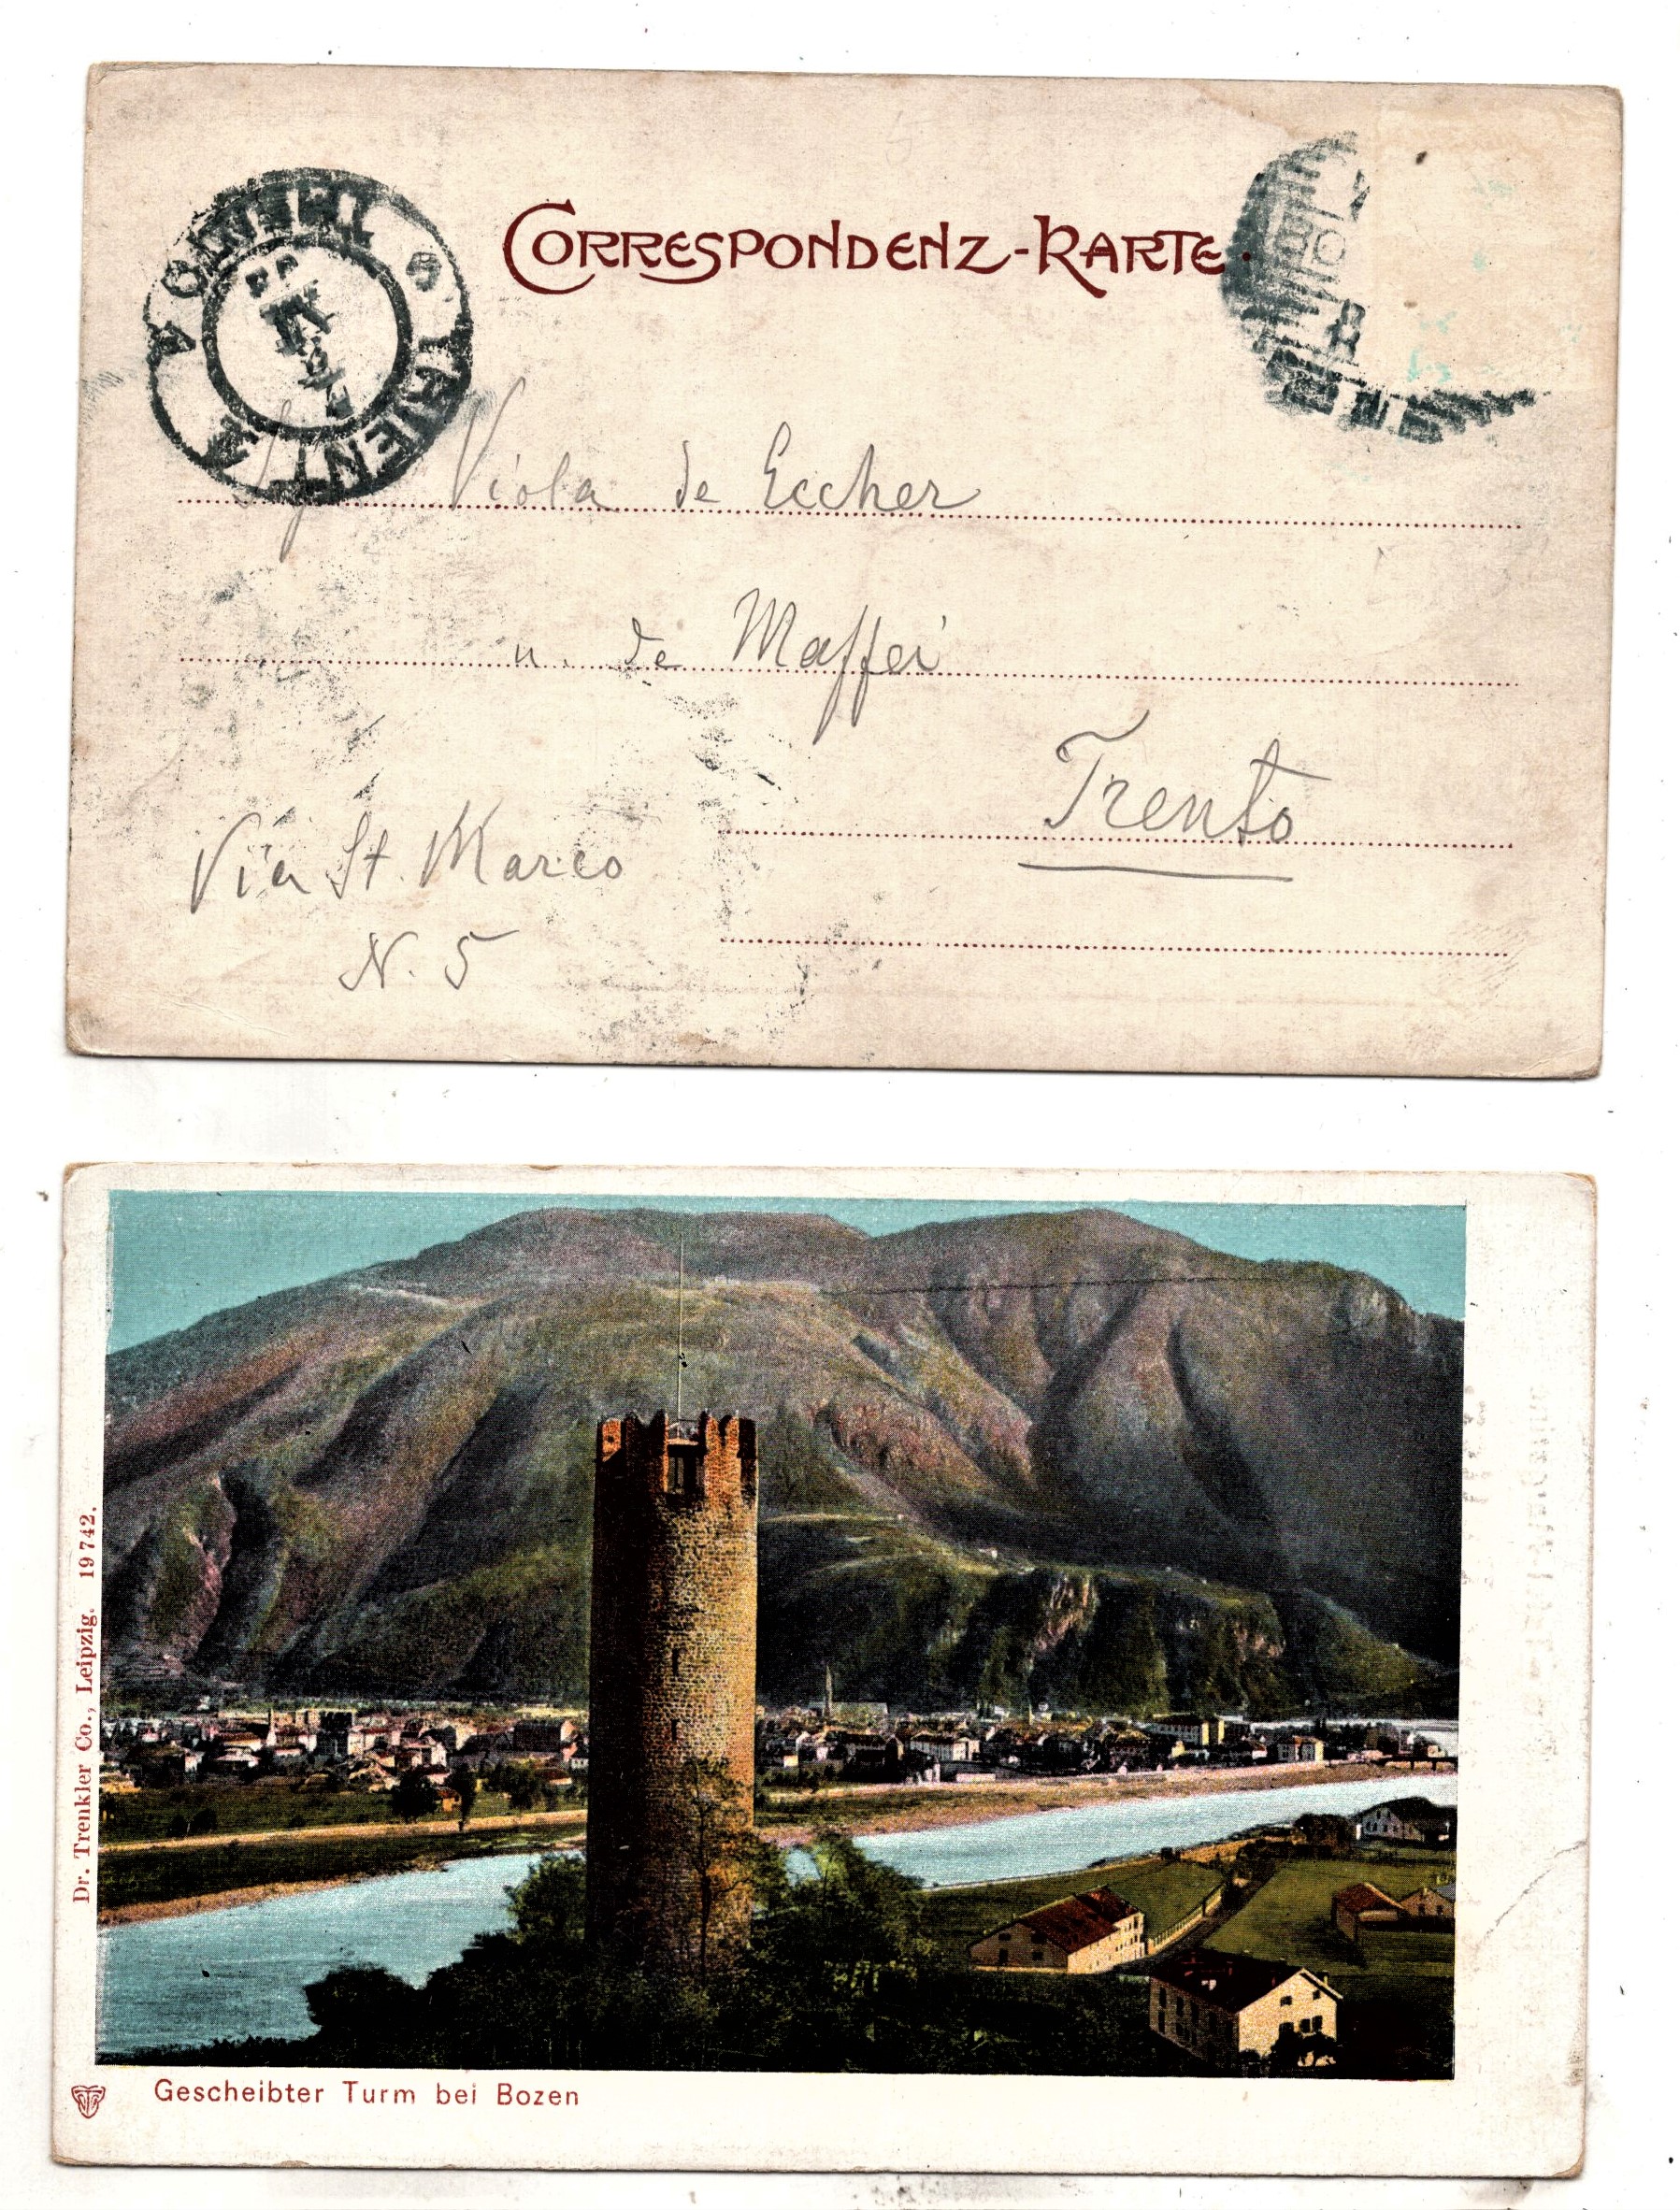 CORRESPONDENZ-KARTE.
Viola de Eccher
n. de Maffei
Trento
Via St. Marco
N. 5
Dr. Trenkler Co., Leipzig. 19742.
Gescheibter Turm bei Bozen